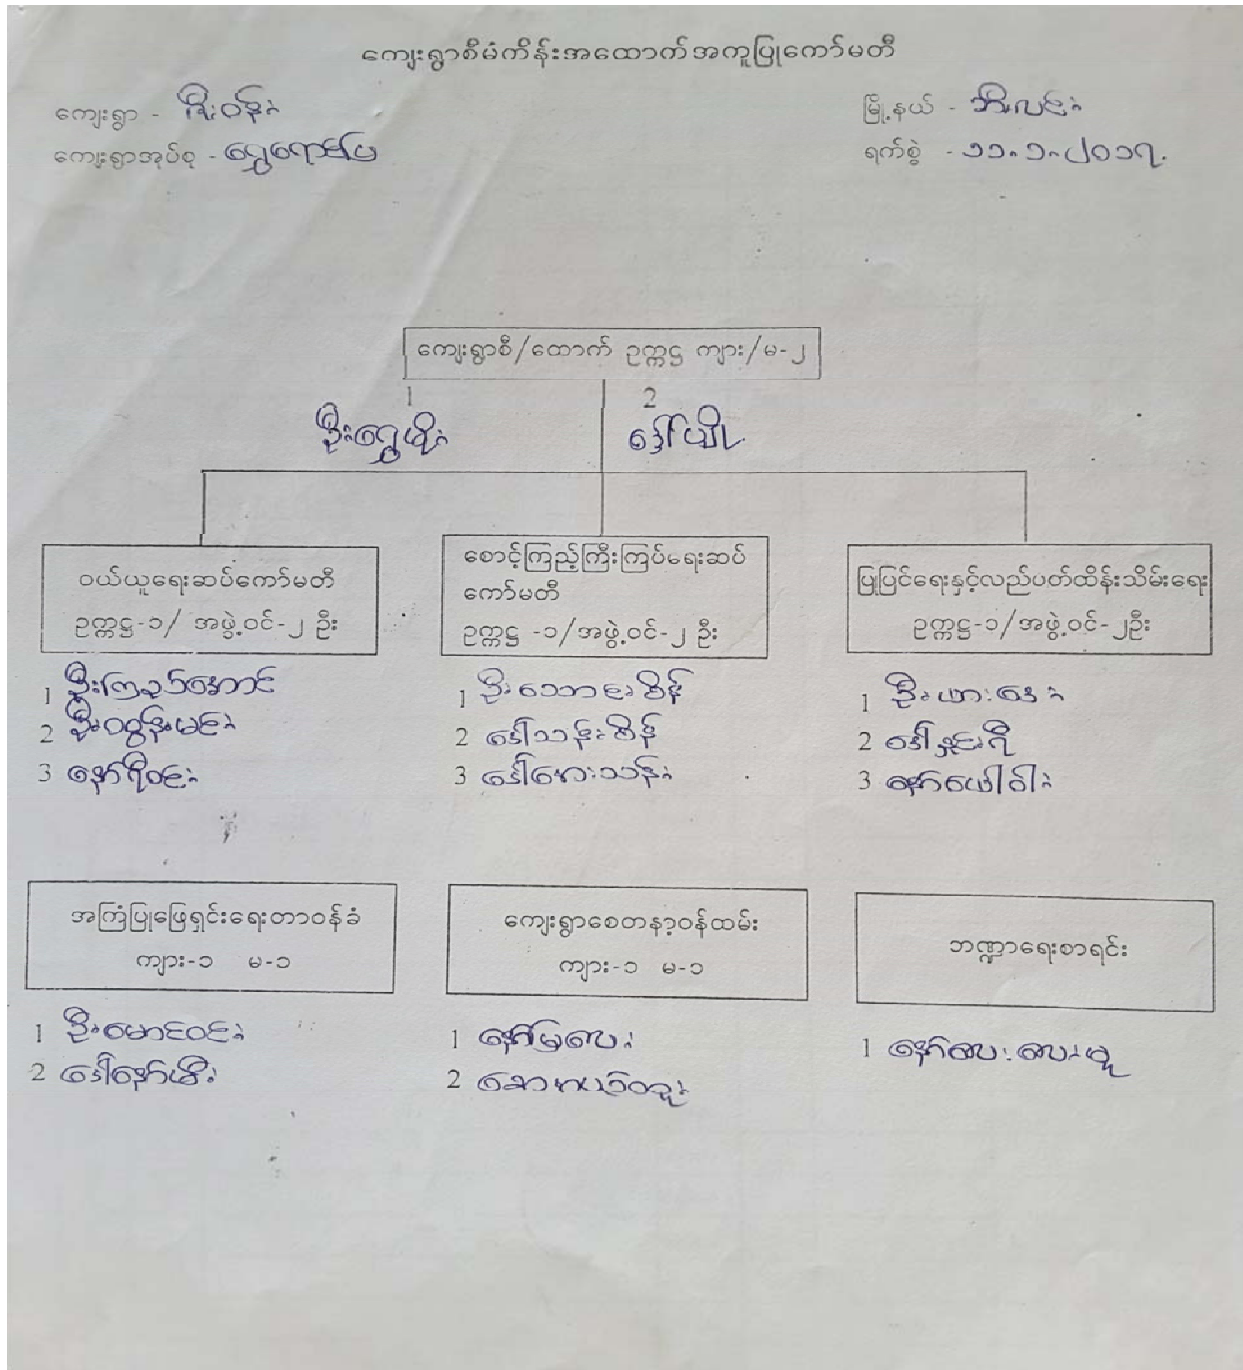 ကျေးရွာစီမံကိန်းအထောက်အကူပြုကော်မတီ
ကျေးရွာ - ဇီးဝန်း
မြို့နယ် - ဘီးလင်း
ကျေးရွာအုပ်စု - ရွှေရောင်ပြ
ရက်စွဲ - ၁၁.၁.၂၀၁၇.
ကျေးရွာစီ/ထောက် ဥက္ကဋ္ဌ ကျား/မ-၂
1 2
ဦးရွှေမိုး ဒေါ်ချို
ဝယ်ယူရေးဆပ်ကော်မတီ
ဥက္ကဋ္ဌ-၁/ အဖွဲ့ဝင်-၂ ဦး
1 ဦးကြည်အောင်
2 ဦးဝင်း
3 နော်ရီဝင်း
စောင့်ကြည့်ကြီးကြပ်ရေးဆပ်
ကော်မတီ
ဥက္ကဋ္ဌ -၁/အဖွဲ့ဝင်-၂ ဦး
1 ဦးသောင်းစိန်
2 ဒေါ်သန်းစိန်
3 ဒေါ်အေးသန်း
ပြုပြင်ရေးနှင့်လည်ပတ်ထိန်းသိမ်းရေး
ဥက္ကဋ္ဌ-၁/အဖွဲ့ဝင်-၂ဦး
1
2 ဒေါ်နှင်းရီ
3 နော်ပေါ်ဝါး
အကြံပြုဖြေရှင်းရေးတာဝန်ခံ
ကျား-၁ မ-၁
1 ဦးမောင်ဝင်း
2 ဒေါ်နော်မီး
ကျေးရွာစေတနာ့ဝန်ထမ်း
ကျား-၁ မ-၁
1 နော်မြလေး
2
ဘဏ္ဍာရေးစာရင်း
1 နော်လေးလေးမူ